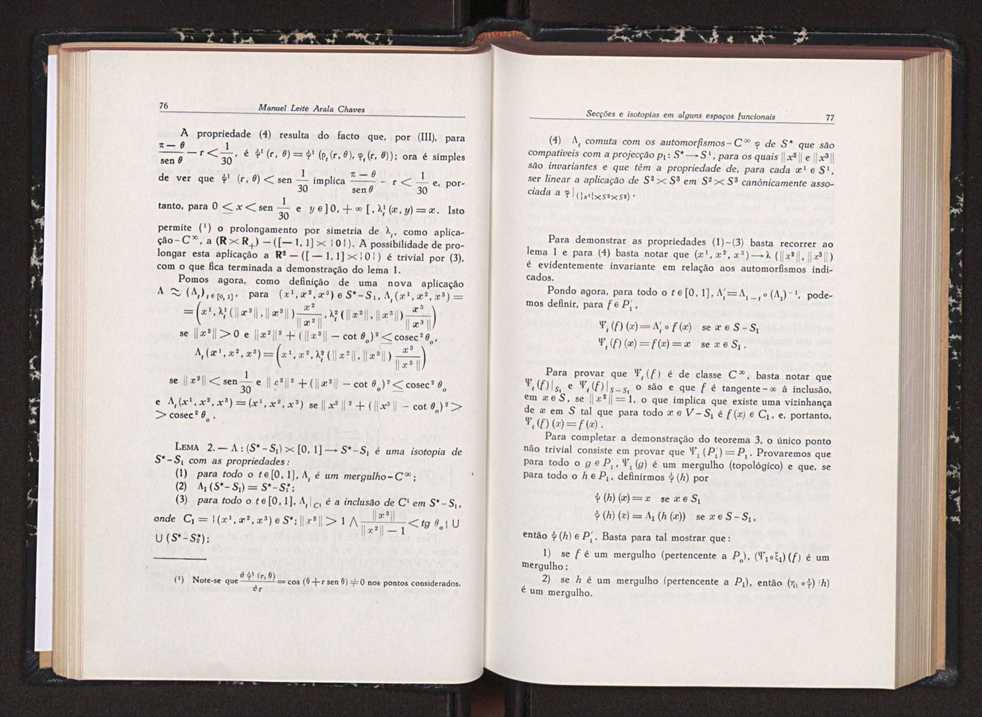 76 Manuel Leite Arala Chaves
A propriedade (4) resulta do facto que, por (III), para
π − θ / sen θ − r < 1/30, é ψ¹ (r, θ) = ψ¹ (ρ_t (r, θ), φ_t (r, θ)); ora é simples
de ver que ψ¹ (r, θ) < sen 1/30 implica π − θ / sen θ − r < 1/30 e, por-
tanto, para 0 ≤ x < sen 1/30 e y ∈ ]0, + ∞ [, λ¹_t (x, y) = x. Isto
permite (¹) o prolongamento por simetria de λ_t, como aplica-
ção-C^∞, a (R × R₊) − ([− 1, 1] × {0}). A possibilidade de pro-
longar esta aplicação a R² − ([− 1, 1] × {0}) é trivial por (3),
com o que fica terminada a demonstração do lema 1.
Pomos agora, como definição de uma nova aplicação
Λ ≈ (Λ_t)_{t ∈ [0, 1]}, para (x¹, x², x³) ∈ S* − S₁, Λ_t (x¹, x², x³) =
= (x¹, λ¹_t (‖x²‖, ‖x³‖) x²/‖x²‖, λ²_t (‖x²‖, ‖x³‖) x³/‖x³‖)
se ‖x²‖ > 0 e ‖x²‖² + (‖x³‖ − cot θ₀)² ≤ cosec² θ₀,
Λ_t (x¹, x², x³) = (x¹, x², λ²_t (‖x²‖, ‖x³‖) x³/‖x³‖)
se ‖x²‖ < sen 1/30 e ‖x²‖² + (‖x³‖ − cot θ₀)² ≤ cosec² θ₀
e Λ_t (x¹, x², x³) = (x¹, x², x³) se ‖x²‖² + (‖x³‖ − cot θ₀)² >
> cosec² θ₀.
LEMA 2. — Λ : (S* − S₁) × [0, 1] → S* − S₁ é uma isotopia de
S* − S₁ com as propriedades:
(1) para todo o t ∈ [0, 1], Λ_t é um mergulho-C^∞;
(2) Λ₁ (S* − S₁) = S* − S₁*;
(3) para todo o t ∈ [0, 1], Λ_t |_{C₁} é a inclusão de C¹ em S* − S₁,
onde C₁ = {(x¹, x², x³) ∈ S*; ‖x²‖ > 1 ∧ ‖x³‖ / ‖x²‖ − 1 < tg θ₀} ∪
∪ (S* − S₂*);
(¹) Note-se que ∂ψ¹ (r, θ) / ∂r = cos (θ + r sen θ) ≠ 0 nos pontos considerados.
Secções e isotopias em alguns espaços funcionais 77
(4) Λ_t comuta com os automorfismos-C^∞ φ de S* que são
compatíveis com a projecção p₁ : S* → S¹, para os quais ‖x²‖ e ‖x³‖
são invariantes e que têm a propriedade de, para cada x¹ ∈ S¹,
ser linear a aplicação de S² × S³ em S² × S³ canònicamente asso-
ciada a φ |_({x¹} × S² × S³).
Para demonstrar as propriedades (1)-(3) basta recorrer ao
lema 1 e para (4) basta notar que (x¹, x², x³) → λ (‖x²‖, ‖x³‖)
é evidentemente invariante em relação aos automorfismos indi-
cados.
Pondo agora, para todo o t ∈ [0, 1], Λ′_t = Λ_{1 − t} ∘ (Λ₁)⁻¹, pode-
mos definir, para f ∈ P′₁,
Ψ_t (f) (x) = Λ′_t ∘ f (x) se x ∈ S − S₁
Ψ_t (f) (x) = f (x) = x se x ∈ S₁.
Para provar que Ψ_t (f) é de classe C^∞, basta notar que
Ψ_t (f)|_{S₁} e Ψ_t (f)|_{S − S₁} o são e que f é tangente-∞ à inclusão,
em x ∈ S, se ‖x²‖ = 1, o que implica que existe uma vizinhança
de x em S tal que para todo x ∈ V − S₁ é f (x) ∈ C₁ e, portanto,
Ψ_t (f) (x) = f (x).
Para completar a demonstração do teorema 3, o único ponto
não trivial consiste em provar que Ψ₁ (P′₁) = P₁. Provaremos que
para todo o g ∈ P′₁, Ψ₁ (g) é um mergulho (topológico) e que, se
para todo o h ∈ P₁, definirmos ψ (h) por
ψ (h) (x) = x se x ∈ S₁
ψ (h) (x) = Λ₁ (h (x)) se x ∈ S − S₁,
então ψ (h) ∈ P′₁. Basta para tal mostrar que:
1) se f é um mergulho (pertencente a P₀), (Ψ₁ ∘ ξ₁) (f) é um
mergulho;
2) se h é um mergulho (pertencente a P₁), então (η₁ ∘ ψ) (h)
é um mergulho.